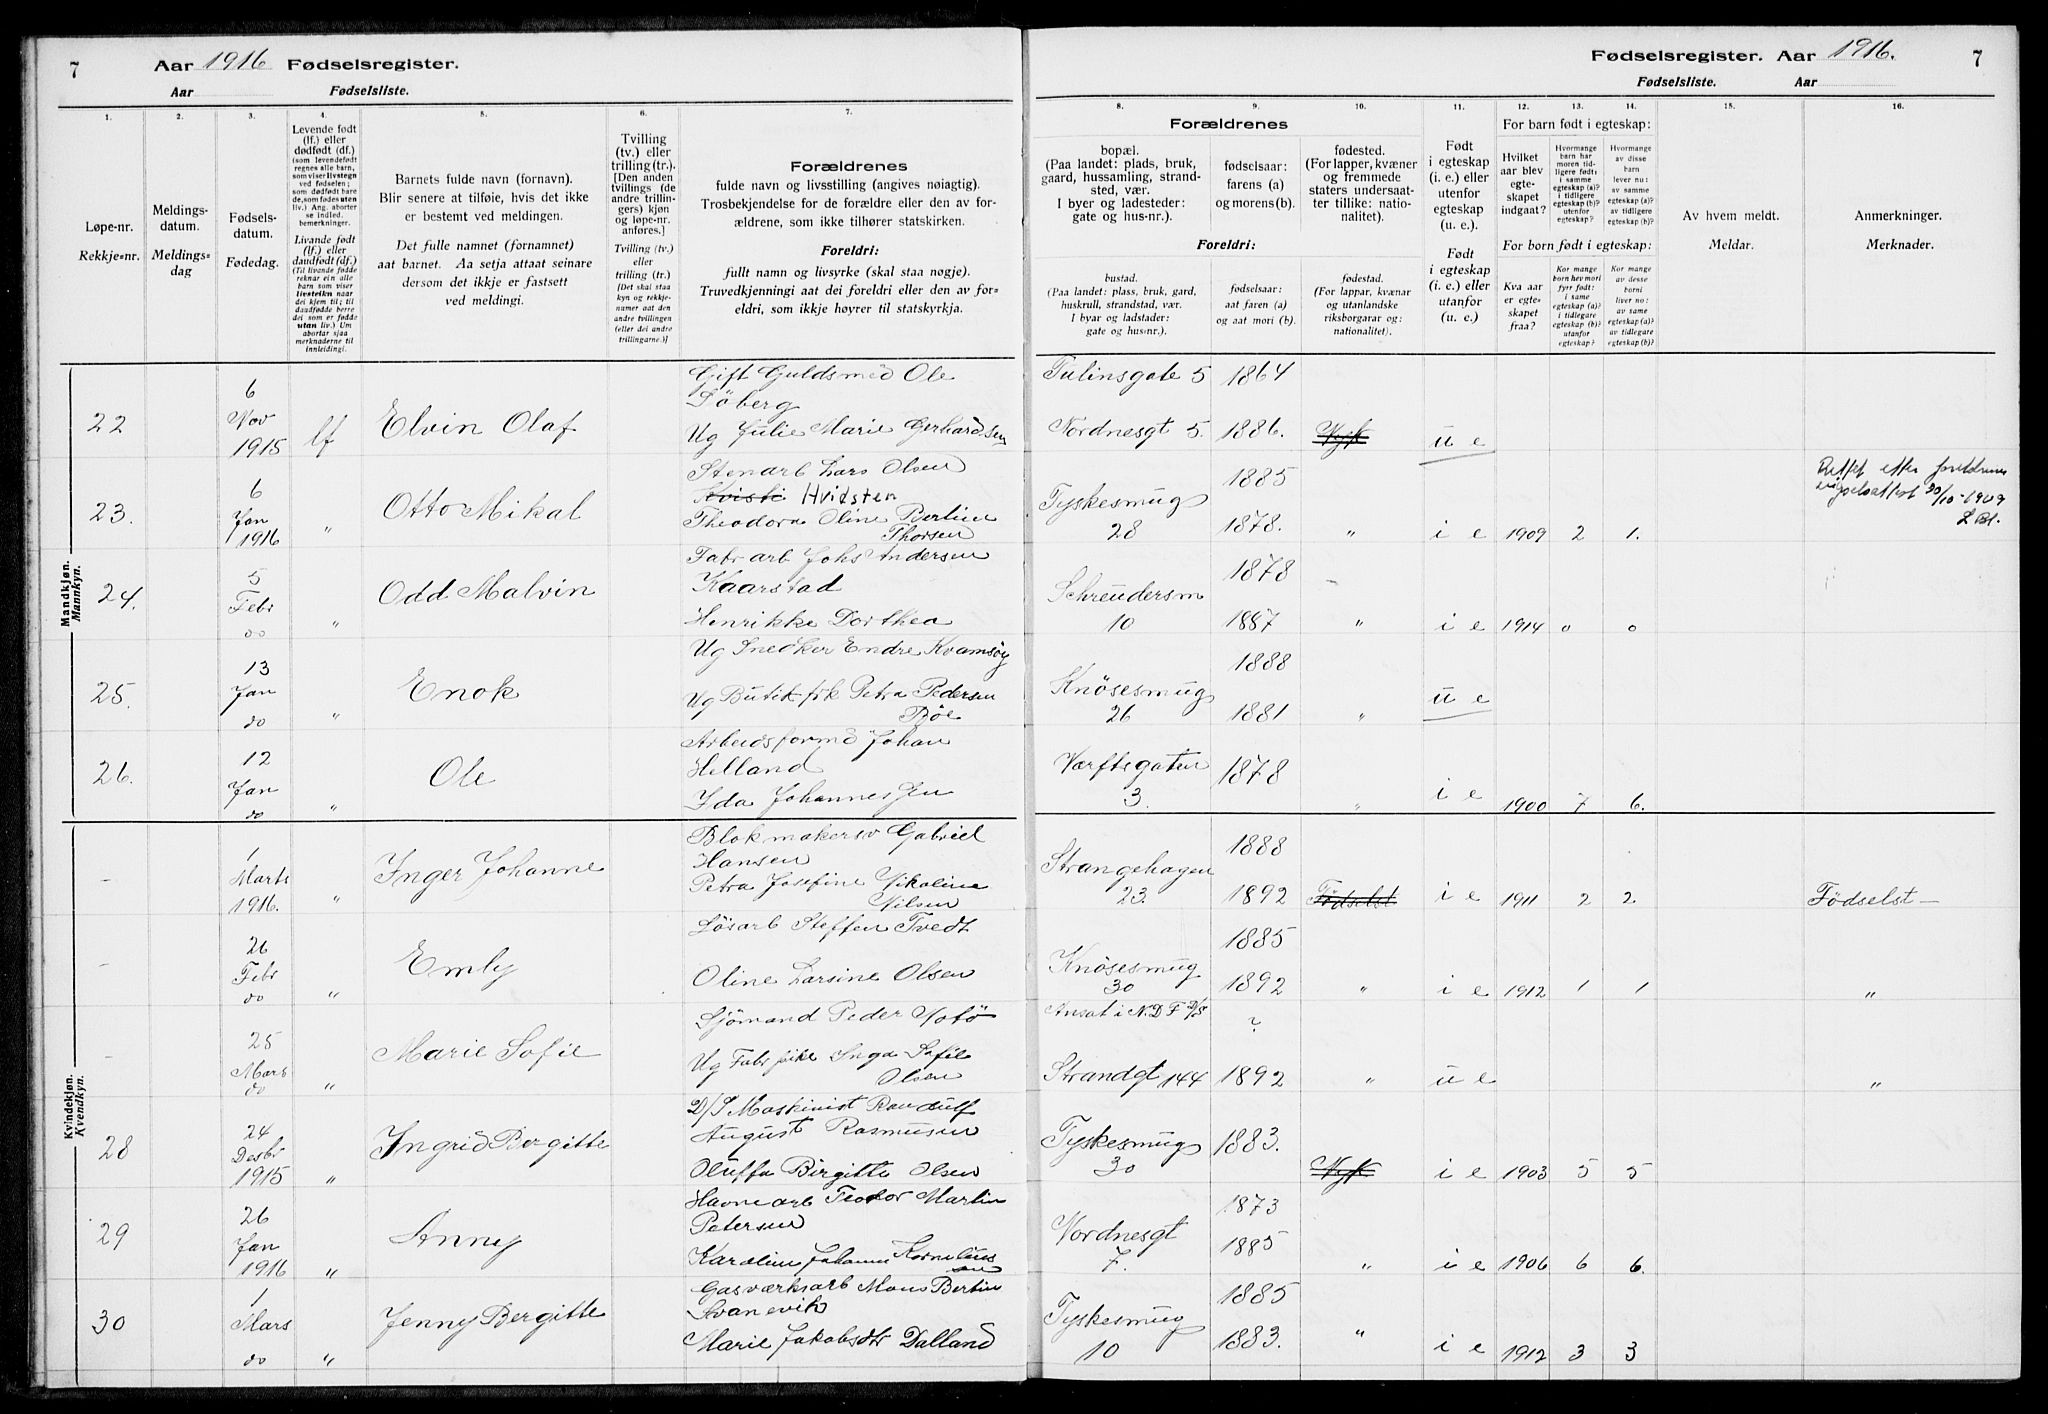 7 Aar 1916 Fødselsregister.
Aar Fødselsliste.
Fødselsregister. Aar 1916. 7
Fødselsliste. Aar
1. 2. 3. 4. 5. 6. 7.
Løpe-nr.
Rekkje=nr.
Meldings-
datum.
Meldings=
dag
Fødsels-
datum.
Fødedag.
Levende født
(lf.) eller
dødfødt (df.)
(som levendefødt
regnes alle barn,
som viser livstegn
ved fødselen;
som dødfødt bare
de, som fødes uten
liv.) Ang. aborter
se indled.
bemerkninger.
Livande født
(lf.) eller
daudfødt (df.)
(Til livande fødde
reknar ein alle
barn som viser
livsteikn naar
dei kjem til; til
daudfødde berre
dei som er fødde
utan liv.) Um
abortar sjaa
merknaderne til
innleidingi.
Barnets fulde navn (fornavn).
Blir senere at tilføie, hvis det ikke
er bestemt ved meldingen.
Det fulle namnet (fornamnet)
aat barnet. Aa setja attaat seinare
dersom det ikkje er fastsett
ved meldingi.
Tvilling
(tv.) eller
trilling (tr.).
[Den anden
tvillings (de
andre trillin-
gers) kjøn
og løpe-nr.
anføres.]
Tvilling (tv.)
eller
trilling (tr.)
[Det skal staa
kyn og rekkje-
numer aat den
andre tvillingen
(eller dei andre
trillingarne.)]
Forældrenes
fulde navn og livsstilling (angives nøiagtig).
Trosbekjendelse for de forældre eller den av for-
ældrene, som ikke tilhører statskirken.
Foreldri:
fullt namn og livsyrke (skal staa nøgje).
Truvedkjenningi aat dei foreldri eller den av for=
eldri, som ikkje høyrer til statskyrkja.
8. 9. 10. 11. 12. 13. 14. 15. 16.
Forældrenes
bopæl.
(Paa landet: plads, bruk,
gaard, hussamling, strand-
sted, vær.
I byer og ladesteder:
gate og hus-nr.).
fødselsaar:
farens (a)
og morens (b).
fødested.
(For lapper, kvæner
og fremmede
staters undersaat-
ter tillike: natio-
nalitet).
Foreldri:
bustad.
(Paa landet: plass, bruk, gard,
huskrull, strandstad, vær.
I byar og ladstader:
gate og hus=nr.).
fødselsaar:
aat faren (a)
og aat mori (b).
fødestad.
(For lappar, kvænar
og utanlandske
riksborgarar og:
nationalitet).
Født
i egteskap
(i. e.) eller
utenfor
egteskap
(u. e.).
Født
i egteskap
(i. e.) eller
utanfor
(u. e.).
For barn født i egteskap:
Hvilket
aar blev
egte-
skapet
indgaat?
Hvormange
barn har
moren tid-
ligere født:
i samme
egteskap (a)?
i tidligere
egteskap (b)?
utenfor
egteskap?
Hvormange
av disse
barn
lever nu:
av samme
egteskap (a)?
av tidligere
egteskap (b)?
For born født i egteskap:
Kva aar
er egte=
skapet
fraa?
Kor mange
born hev mori
fyrr født:
i same
egteskap (a)?
i tidlegare
egteskap (b)?
utanfor
egteskap?
Kor mange
av desse
borni
liver no:
av same
egteskap (a)?
av tidlegare
egteskap (b)?
Av hvem meldt.
Meldar.
Anmerkninger.
Merknader.
Mandkjøn.
Mannkyn.
22 6 Nov 1915 lf Elvin Olaf
Gift Guldsmed Ole
Søberg
Ug Julie Marie Gerhardsen
Tulinsgate 5 1864
Nordnesgt 5. 1886. Nyk u e
23. 6 Jan 1916 " Otto Mikal
Stenarb Lars Olsen
Kvisti Hvidsten
Theodora Oline Bertine
Thorsen
Tyskesmug 28 1885
1878. " i e 1909 2 1.
Rettet efter foreldrenes
vigselsattest 30/10-1909
L Bl.
24. 5 Febr do " Odd Malvin
Fabr arb Johs Andersen
Kaarstad
Henrikke Dorthea
Schreudersm 10 1878
1887 " i e 1914 0 0
25. 13 Jan do " Enok
Ug Snedker Endre Kvamsöy
Ug Butikfrk Petra Pedersen
Böe
Knösesmug 26 1888
1881 " u e
26. 12 Jan do " Ole
Arbeidsformd Johan
Helland
Ida Johannessen
Værftsgaten 3. 1878 " i e 1900 7 6.
Kvindekjøn.
Kvendkyn.
- 1 Marts 1916. " Inger Johanne
Blokmakersv Gabriel
Hansen
Petra Josefine Nikoline
Nilsen
Strangehagen 23. 1888
1892 Födselst i e 1911 2 2. Födselst—
- 26 Febr do " Emly
Løsarb Steffen Tvedt
Oline Larsine Olsen
Knösesmug 30 1885
1892 " i e 1912 1 1 "
- 25 Mars do " Marie Sofie
Sjömand Peder Notö
Ug Fabr pike Inga Sofie
Olsen
Ansat i N.D.F D/S ?
Strandgt 144 1892 " u e "
28 24 Desbr 1915 " Ingrid Bergitte
D/S Maskinist Randulf
August Rasmusen
Oluffa Birgitte Olsen
Tyskesmug 30 1883. Nyk i e 1903 5 5
29 26 Jan 1916 " Anny
Havnearb Teodor Martin
Petersen
Karoline Johanne Kornelius
sen
Nordnesgt 7. 1873
1885 " i e 1906 6 6.
30 1 Mars do " Jenny Bergitte
Gasværksarb Mons Bertin
Svanevik
Marie Jakobsdtr Dalland
Tyskesmug 10 1885
1883. " i e 1912 3 3